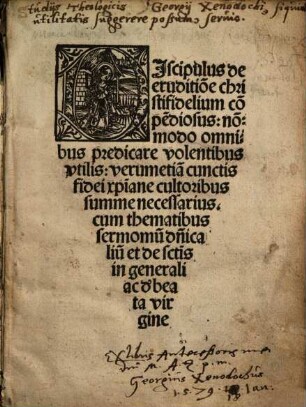 Studijs Theologicis Georgij Xenodochi, siquid
utilitatis suggerere possum, servio.
DIscipulus de
eruditiōe chri
stifidelium cō
pēdiosus: nō
modo omni
bus predicare volentibus
vtilis: verumetiā cunctis
fidei xpiane cultoribus
summe necessarius.
cum thematibus
sermomū dn̄ica
liū et de sctis
in generali
ac d̓ bea
ta vir
gine
Ex libris Antecessoris me
p. m.
Georgius Xenodochus
1579. Ian.